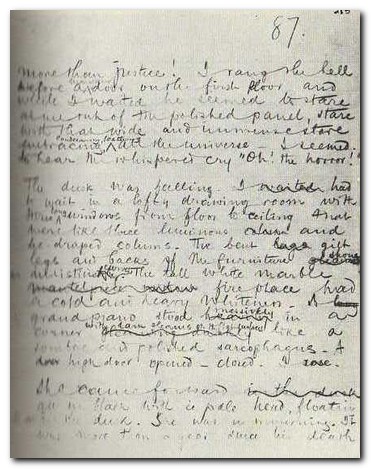 87.
more than justice! I rang the bell
before a door on the first floor and
while I waited he seemed to stare
at me out of the polished panel, stare
with that wide and immense stare
embracing condemning loathing all the universe. I seemed
to hear the whispered cry "Oh! the horror!"
The dusk was falling. I waited had
to wait in a lofty drawing room with
three long windows from floor to ceiling that
were like three luminous and
be draped colums. The bent gilt
legs and backs of the furniture shone
in indistinct curves. The tall white marble
mantelpiece fire place had
a cold and heavy whiteness. A
grand piano stood massively in a
corner with gleams on like a
sombre and polished sarcophagus. A
door high door opened - closed. I rose.
She came forward
all in black with a pale head, floating
in the dusk. She was in mourning. It
was more than a year since his death